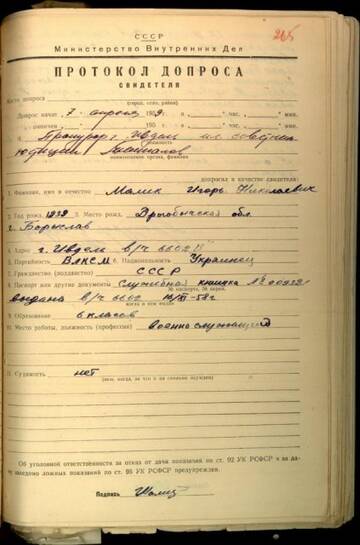 265
СССР
Министерство Внутренних Дел
ПРОТОКОЛ ДОПРОСА
СВИДЕТЕЛЯ
Место допроса
(город, село, район)
Допрос начат 7 апреля 1959 г. в час. мин.
окончен 195 г. в час. мин.
Прокурор г. Ивдель мл. советник
должность
юстиции
наименование органа, фамилия
допросил в качестве свидетеля:
1. Фамилия, имя и отчество Малик Игорь Николаевич
2. Год рожд. 1939 3. Место рожд. Дрогобычская обл.
г. Борислав
4. Адрес г. Ивдель в/ч 6602
5. Партийность ВЛКСМ 6. Национальность Украинец
7. Гражданство (подданство) СССР
8. Паспорт или другие документы служебная книжка №
№ паспорта, № серии,
выдана в/ч 6602 58 г
когда и кем выдан
9. Образование 6 класов
10. Место работы, должность (профессия) военнослужащий
11. Судимость нет
(кем, когда, за что и на сколько осужден)
Об уголовной ответственности за отказ от дачи показания по ст. 92 УК РСФСР и за да-
чу заведомо ложных показаний по ст. 95 УК РСФСР предупрежден.
Подпись Малик